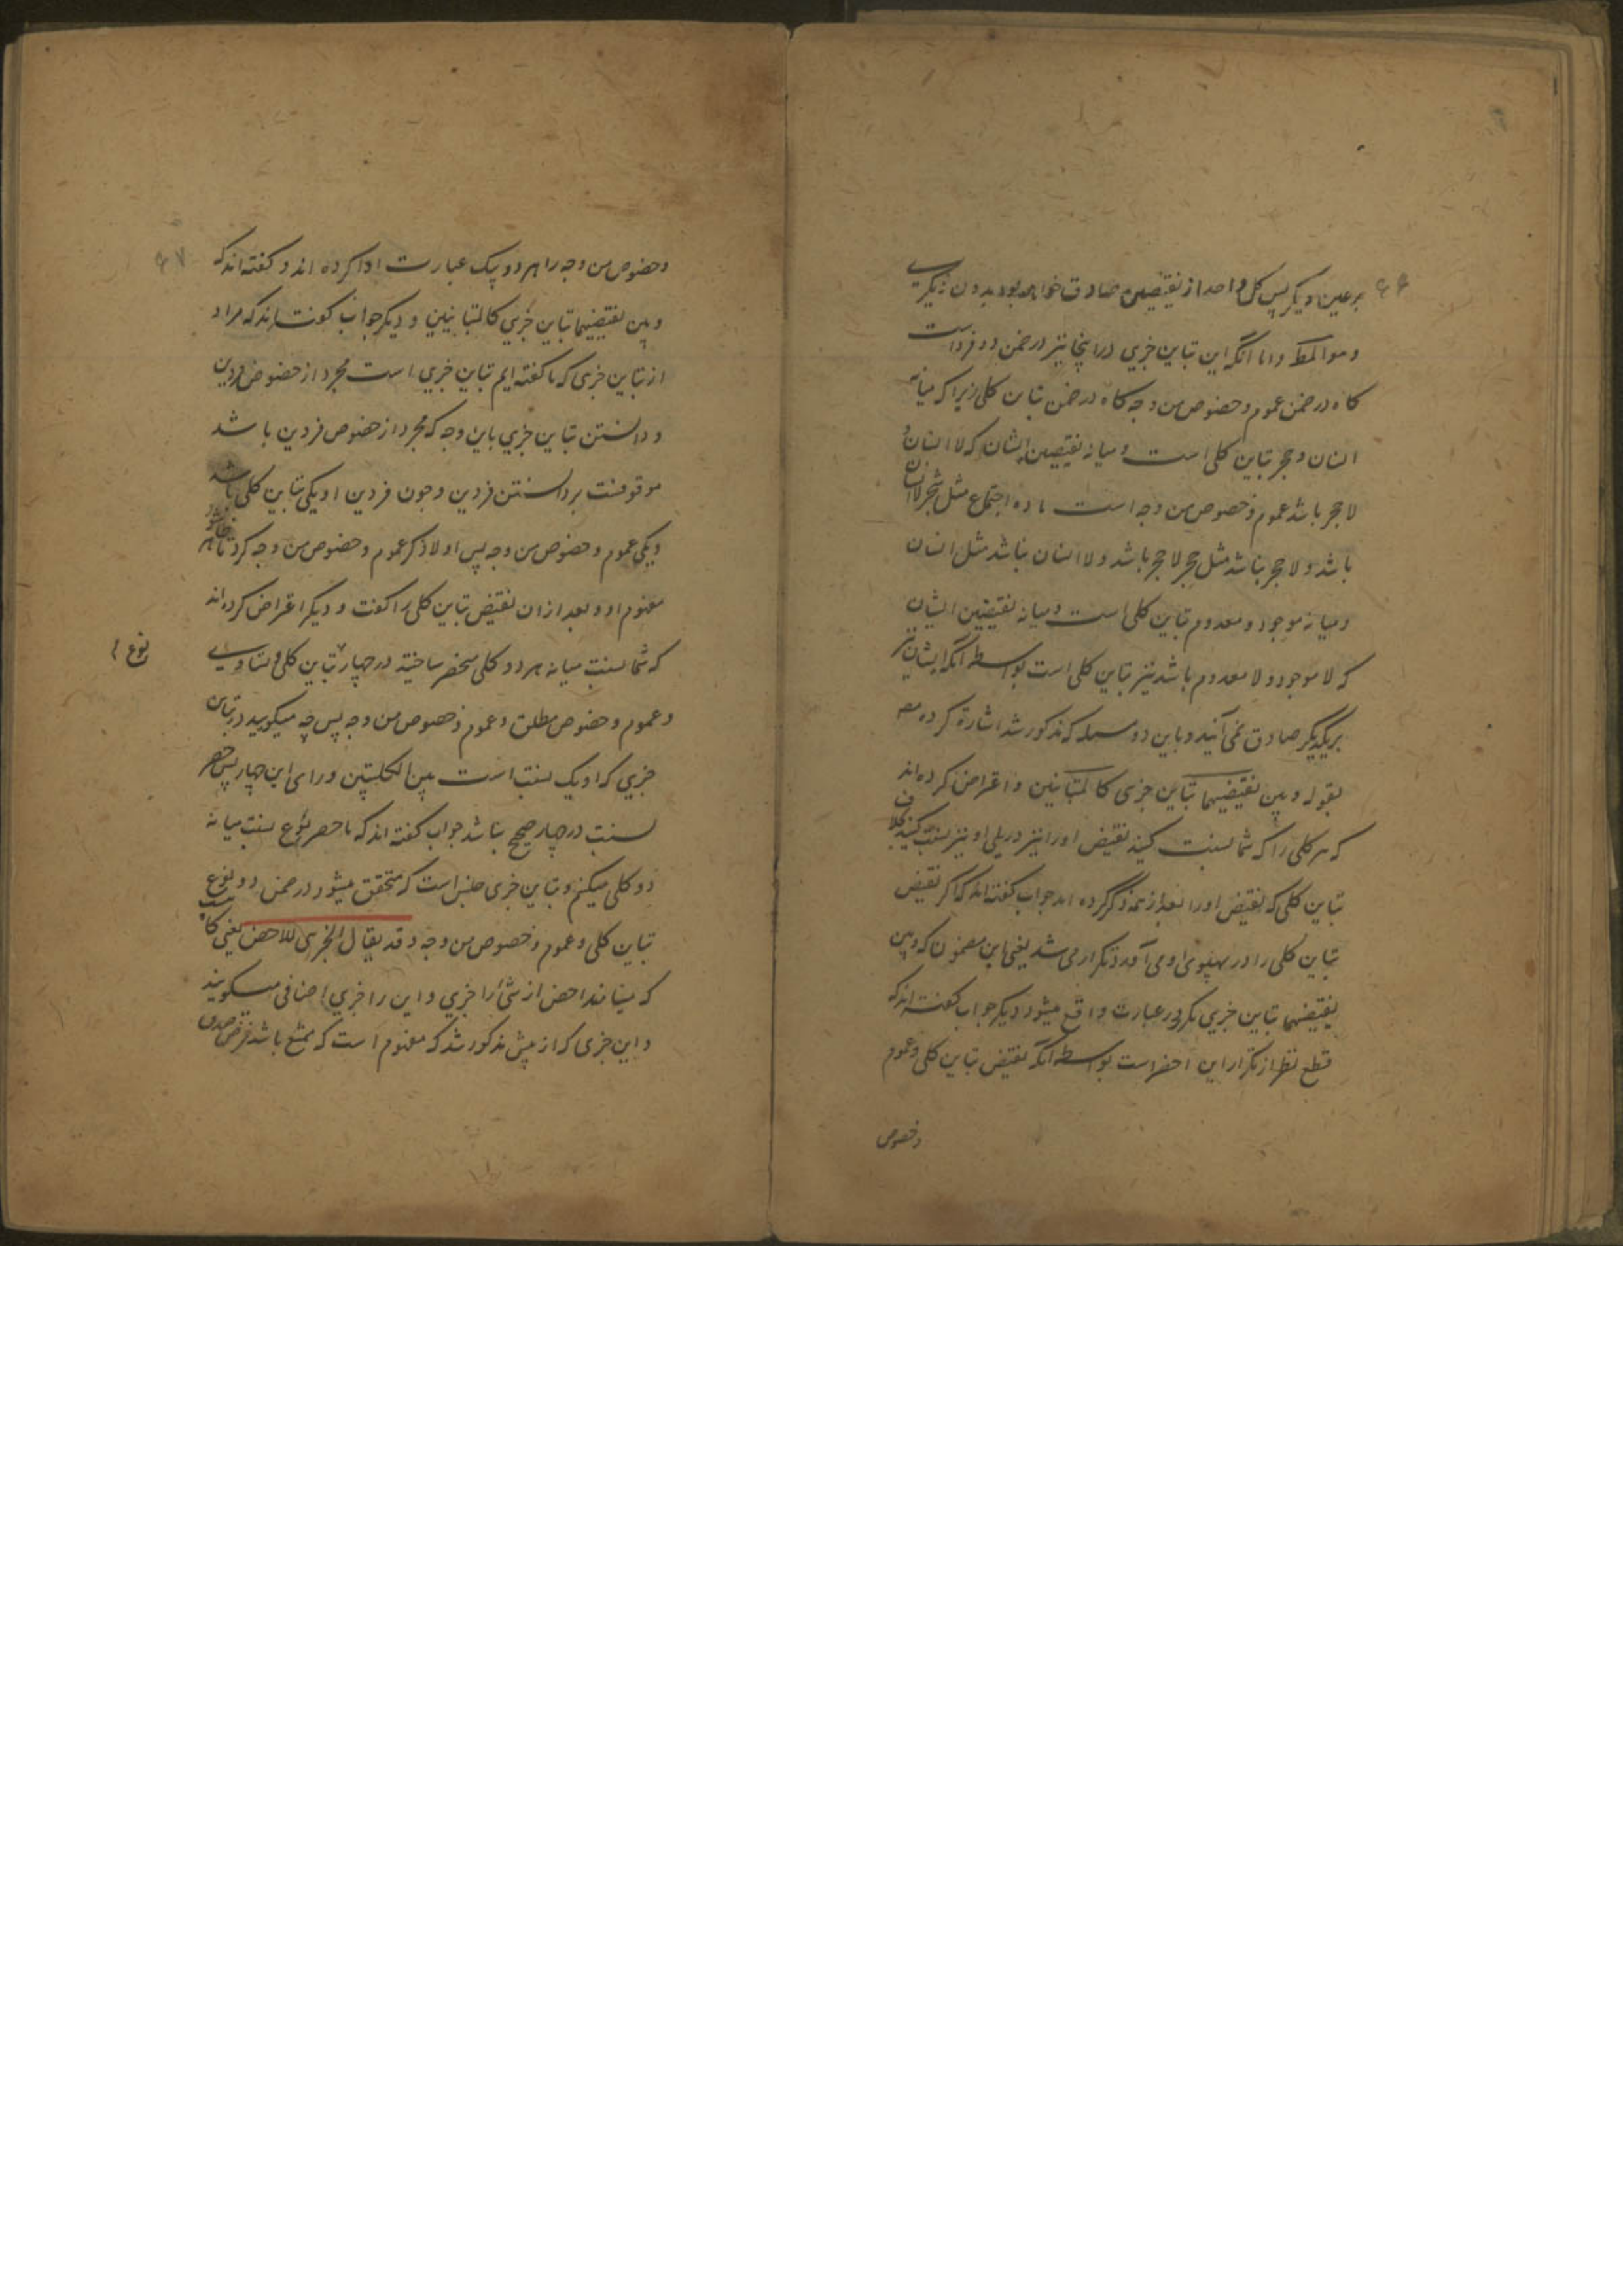 ۶۶
بر عین دیگر پس کل واحد از نقیضین صادق خواهد بود بدون دیگرے
و هو المط و اما آنکه این تباین جزیی در اینجا نیز در ضمن دو فرد است
کاه در ضمن عموم و خصوص من وجه کاه در ضمن تباین کلی زیرا که میانه
انسان و حجر تباین کلی است و میانه نقیضین ایشان که لا انسان و
لا حجر باشد عموم و خصوص من وجه است ماده اجتماع مثل شجر لا انسان
باشد و لا حجر نباشد مثل حجر لا حجر باشد و لا انسان نباشد مثل انسان
و میانه موجود و معدوم تباین کلی است و میانه نقیضین ایشان
که لا موجود و لا معدوم باشد نیز تباین کلی است بواسطه آنکه ایشان نیز
بریکدیگر صادق نمی آیند و باین دو مذکور شد اشارة کرده مص
بقوله و بین نقیضیهما تباین جزی کالمتباینین و اعتراض کرده اند
که هر کلی را که شما نسبت کنید نقیض اورا نیز در پلی او نیز نسبت کنید بخلاف
تباین کلی که نقیض اورا بعد از همه ذکر کرده اند جواب کفته اند که اکر نقیض
تباین کلی را در پهلوی او می آورد تکرار می شد یعنی این مضمون که و بین
نقیضیهما تباین جزیی مکرر در عبارت واقع میشود دیگر جواب کفته اند که
قطع نظر از تکرار این اخصر است بواسطه آنکه نقیض تباین کلی و عموم
و خصوص
۶۷
و خصوص من وجه را هر دو بیک عبارت ادا کرده اند و کفته اند که
و بین نقیضیهما تباین جزیی کالمتباینین و دیگر جواب کفته اند که مراد
از تباین جزی که ما کفته ایم تباین جزیی است مجرد از خصوص فردین
و دانستن تباین جزیی باین وجه که مجرد از خصوص فردین باشد
موقوفست بر دانستن فردین و چون فردین او یکی تباین کلی باشد
و یکی عموم و خصوص من وجه پس اولا ذکر عموم و خصوص من وجه کرد تا ظاهر شود
مفهوم او و بعد از ان نقیض تباین کلی را کفت و دیگر اعتراض کرده اند
که شما نسبت میانه هر دو کلی منحصر ساختید در چهار تباین کلی و تساوے
و عموم و خصوص مطلق و عموم و خصوص من وجه پس چه میکویید در تباین
جزیی که او یک نسبت است بین الکلیتین ورای این چهار پس حصر
نسبت در چهار صحیح نباشد جواب کفته اند که ما حصر نوع نسبت میانه
دو کلی میکنم و تباین جزی جنس است که متحقق میشود در ضمن دو نوع
تباین کلی و عموم و خصوص من وجه و قد یقال الجزی للاخص یعنی کاه
که مینامند اخص از شئ را جزیی و این را جزیی اضافی میکویند
و این جزی که از پیش مذکور شد که مفهوم است که ممتنع باشد فرض صدق
نوع